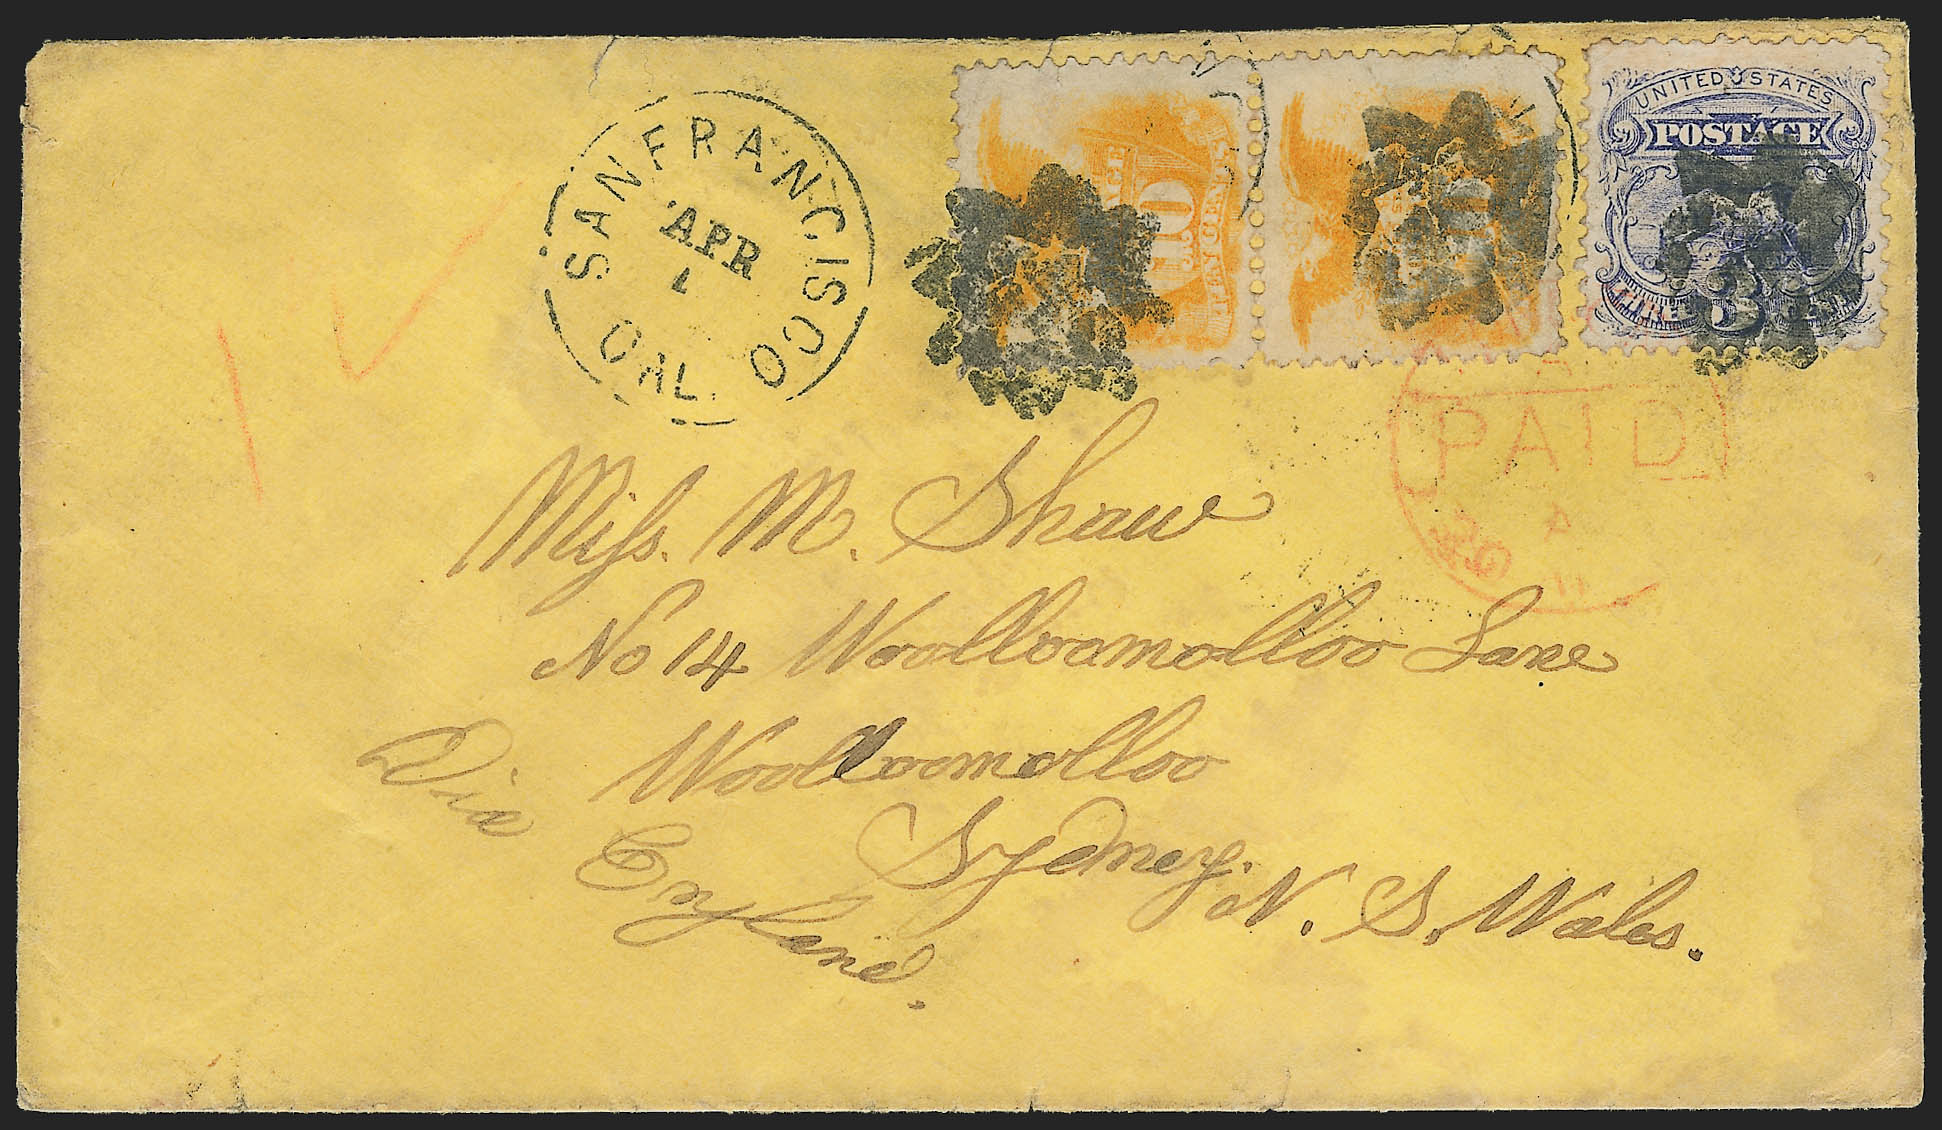 SAN FRANCISCO
APR
1
CAL.
10
TEN CENTS
UNITED STATES
POSTAGE
3
PAID
Miss. M. Shaw
No 14 Woolloomolloo Lane
Woolloomolloo
Sydney.
N. S. Wales.
Via
England.